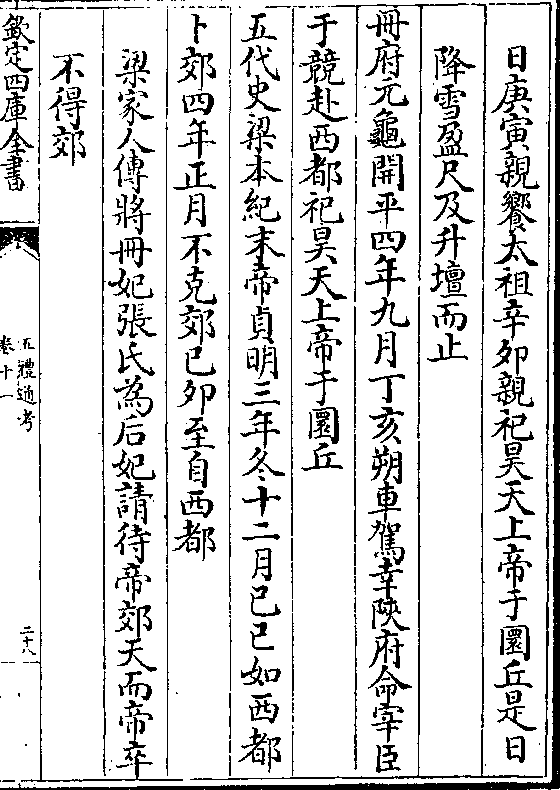 日庚寅親饗太祖辛卯親祀昊天上帝于圜丘是日
降雪盈尺及升壇而止
冊府元龜開平四年九月丁亥朔車駕幸陜府命宰臣
于競赴西都祀昊天上帝于圜丘
五代史梁本紀末帝貞明三年冬十二月已已如西都
卜郊四年正月不克郊已卯至自西都
梁家人傳將冊妃張氏為后妃請待帝郊天而帝卒
不得郊
欽定四庫全書
五禮通考
卷十一
二十八